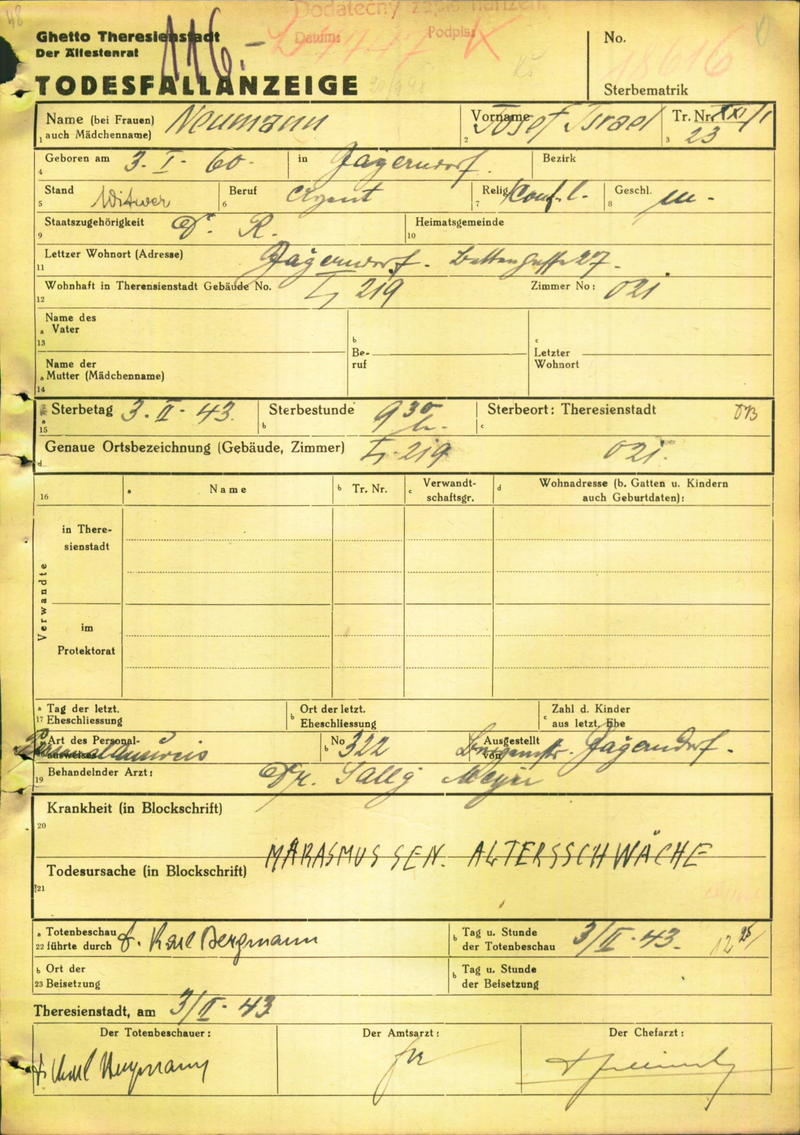 Dodatečný
Datum: Podpis:
Ghetto Theresienstadt
Der Ältestenrat
116.-
No.
18616
TODESFALLANZEIGE
Sterbematrik
Name (bei Frauen) Neumann Vorname Josef Israel Tr. Nr. XXI/1
1 auch Mädchenname) 2 3 23
Geboren am 3. I. 60. in Jägerndorf. Bezirk
4
Stand Witwer Beruf Agent Relig. Konf. l. Geschl. m.
5 6 7 8
Staatszugehörigkeit D. R. Heimatsgemeinde
9 10
Lettzer Wohnort (Adresse) Jägerndorf. 27.
11
Wohnhaft in Therensienstadt Gebäude No. 219 Zimmer No: 021
12
Name des
a Vater
13 b c
Be- Letzter
ruf Wohnort
Name der
a Mutter (Mädchenname)
14
a Sterbetag 3. II. 43. Sterbestunde 9 30 h. Sterbeort: Theresienstadt
15 b c
Genaue Ortsbezeichnung (Gebäude, Zimmer) 219 021.
d
16 a Name b Tr. Nr. c Verwandt-schaftsgr. d Wohnadresse (b. Gatten u. Kindern
auch Geburtdaten):
Verwandte
in There-
sienstadt
im
Protektorat
a Tag der letzt. b Ort der letzt. c Zahl d. Kinder
17 Eheschliessung Eheschliessung aus letzt. Ehe
Art des Personal- b No 322 Ausgestellt Jägerndorf.
ausweises Personalausweis von
19 Behandelnder Arzt: Dr. Sally Meyer
Krankheit (in Blockschrift)
20
MARASMUS SEN. ALTERSSCHWÄCHE
Todesursache (in Blockschrift)
21
a Totenbeschau b Tag u. Stunde
22 führte durch Dr. Karl Bergmann der Totenbeschau 3/II. 43.
b Ort der b Tag u. Stunde
23 Beisetzung der Beisetzung
Theresienstadt, am 3/II. 43
Der Totenbeschauer: Der Amtsarzt: Der Chefarzt:
Dr Karl Bergmann